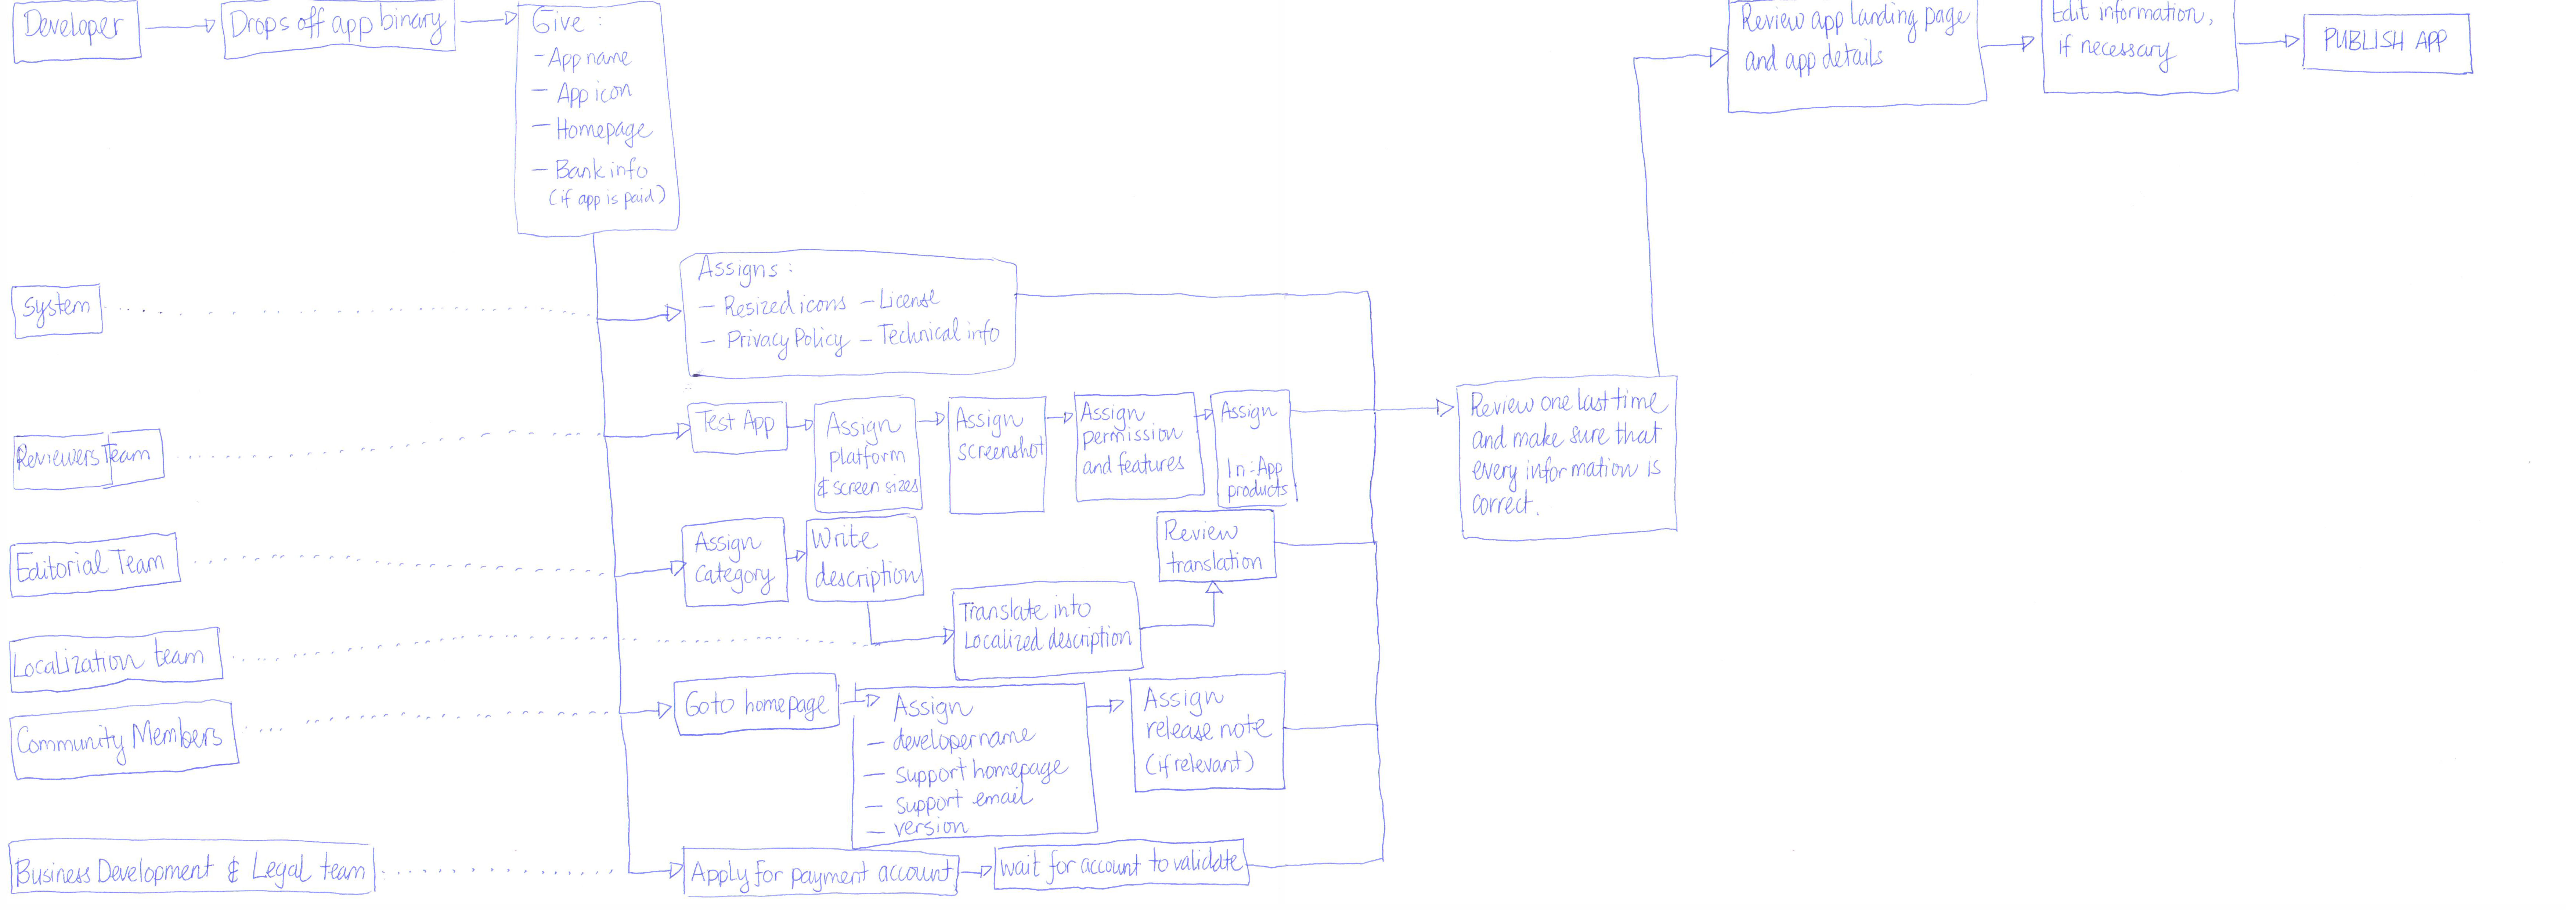 Developer
Drops off app binary
Give :
- App name
- App icon
- Homepage
- Bank info
(if app is paid)
Review app landing page
and app details
Edit information,
if necessary
PUBLISH APP
System
Assigns :
- Resized icons - License
- Privacy Policy - Technical info
Reviewers Team
Test App
Assign
platform
& screen sizes
Assign
screenshot
Assign
permission
and features
Assign
In-App
products
Review one last time
and make sure that
every information is
correct.
Editorial Team
Assign
category
Write
description
Review
translation
Localization team
Translate into
Localized description
Community Members
Go to homepage
Assign
- developer name
- support homepage
- support email
- version
Assign
release note
(if relevant)
Business Development & Legal team
Apply for payment account
wait for account to validate